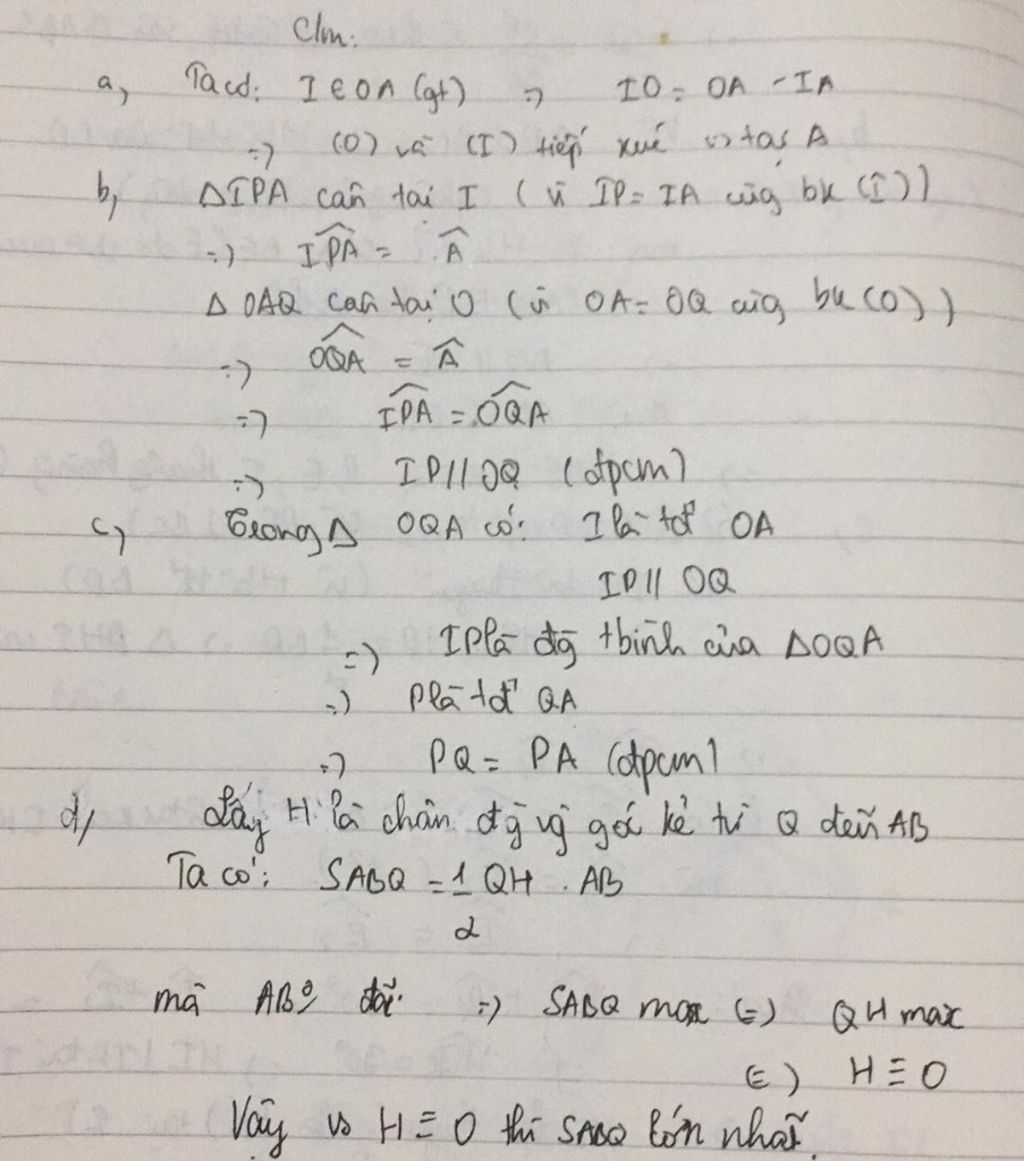 C/m:
a, Ta có: I ∈ OA (gt) => IO = OA - IA
=> (O) và (I) tiếp xúc vs tại A
b, ΔIPA cân tại I (vì IP = IA cùng bk (I))
=> \widehat{IPA} = \widehat{A}
Δ OAQ cân tại O (vì OA = OQ cùng bk (O))
=> \widehat{OQA} = \widehat{A}
=> \widehat{IPA} = \widehat{OQA}
=> IP // OQ (đpcm)
c, Trong Δ OQA có: I là tđ OA
IP // OQ
=> IP là đg tbình của ΔOQA
=> P là tđ QA
=> PQ = PA (đpcm)
d, Lấy H là chân đg vg góc kẻ từ Q đến AB
Ta có: SABQ = 1/2 QH . AB
mà AB º/ đổi. => SABQ max (=) QH max
(=) H ≡ O
Vậy vs H ≡ O thì SABQ lớn nhất.